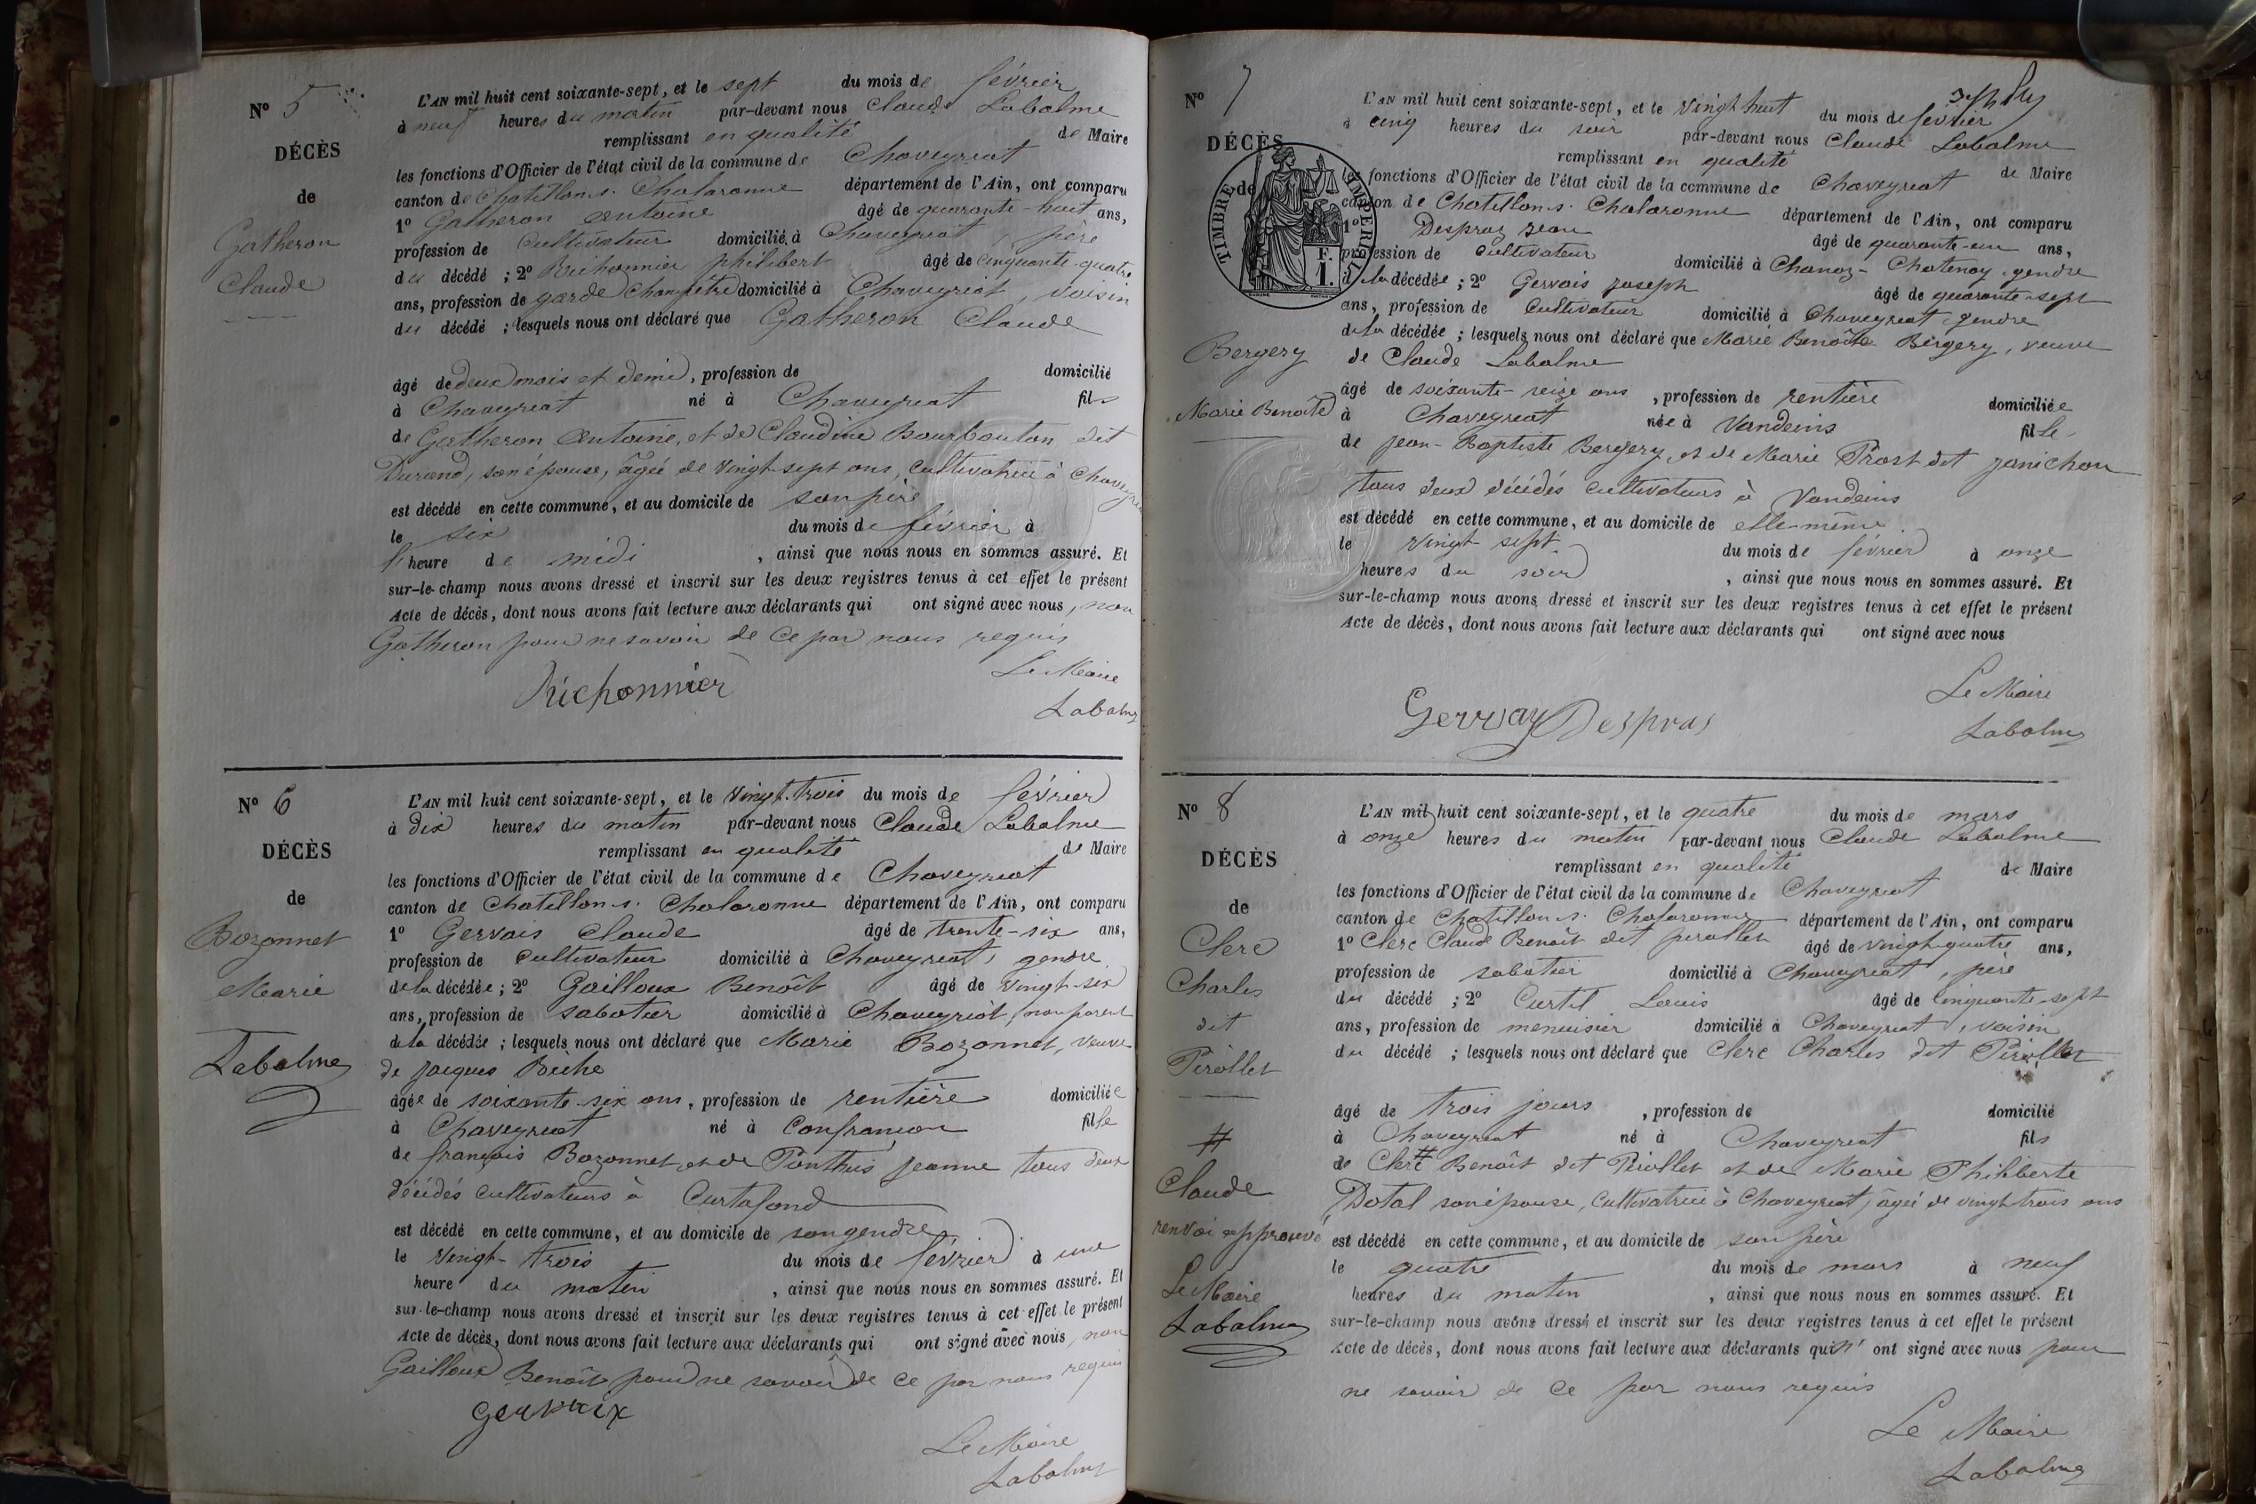 N° 5
DÉCÈS
de
Gatheron
Claude
L'AN mil huit cent soixante-sept, et le sept du mois de février
à neuf heures du matin par-devant nous Claude Labalme
remplissant en qualité de Maire
les fonctions d'Officier de l'état civil de la commune de Chaveyriat
canton de Chatillon s. Chalaronne département de l'Ain, ont comparu
1° Gatheron Antoine âgé de quarante-huit ans,
profession de Cultivateur domicilié à Chaveyriat, père
du décédé ; 2° philibert âgé de cinquante-quatre
ans, profession de garde Champêtre domicilié à Chaveyriat, voisin
du décédé ; lesquels nous ont déclaré que Gatheron Claude
âgé de deux mois et demi, profession de domicilié
à Chaveyriat né à Chaveyriat fils
de Gatheron Antoine, et de Claudine Bourbouton dit
Durand, son épouse, âgée de vingt-sept ans, cultivatrice à Chaveyriat
est décédé en cette commune, et au domicile de son père
le six du mois de février à
l'heure de midi, ainsi que nous nous en sommes assuré. Et
sur-le-champ nous avons dressé et inscrit sur les deux registres tenus à cet effet le présent
Acte de décès, dont nous avons fait lecture aux déclarants qui ont signé avec nous, non
Gatheron pour ne savoir de ce par nous requis
Le Maire
Labalme
N° 6
DÉCÈS
de
Bozonnet
Marie
Labalme
L'AN mil huit cent soixante-sept, et le vingt-trois du mois de février
à dix heures du matin par-devant nous Claude Labalme
remplissant en qualité de Maire
les fonctions d'Officier de l'état civil de la commune de Chaveyriat
canton de Chatillon s. Chalaronne département de l'Ain, ont comparu
1° Gervais Claude âgé de trente-six ans,
profession de Cultivateur domicilié à Chaveyriat, gendre
de la décédée ; 2° Gailloux Benoît âgé de vingt-six
ans, profession de sabotier domicilié à Chaveyriat, non parent
de la décédée ; lesquels nous ont déclaré que Marie Bozonnet, veuve
de Jacques
âgée de soixante-six ans, profession de rentière domiciliée
à Chaveyriat né à Confrançon fille
de françois Bozonnet et de Ponthus Jeanne tous deux
décédés cultivateurs à Curtafond
est décédé en cette commune, et au domicile de son gendre
le vingt-trois du mois de février à une
heure du matin, ainsi que nous nous en sommes assuré. Et
sur-le-champ nous avons dressé et inscrit sur les deux registres tenus à cet effet le présent
Acte de décès, dont nous avons fait lecture aux déclarants qui ont signé avec nous, non
Gailloux Benoît pour ne savoir de ce par nous requis
Gervaix
Le Maire
Labalme
N° 7
DÉCÈS
de
TIMBRE IMPERIAL
1 F.
Bergery
Marie Benoîte
L'AN mil huit cent soixante-sept, et le vingt huit du mois de février
à cinq heures du soir par-devant nous Claude Labalme
remplissant en qualité de Maire
les fonctions d'Officier de l'état civil de la commune de Chaveyriat
canton de Chatillon s. Chalaronne département de l'Ain, ont comparu
1° Despraz Jean âgé de quarante-un ans,
profession de Cultivateur domicilié à Chanoz-Chatenay, gendre
de la décédée ; 2° Gervais Joseph âgé de quarante-sept
ans, profession de Cultivateur domicilié à Chaveyriat, gendre
de la décédée ; lesquels nous ont déclaré que Marie Benoîte Bergery, veuve
de Claude Labalme
âgé de soixante-seize ans, profession de rentière domiciliée
à Chaveyriat née à Vandeins fille
de Jean-Baptiste Bergery, et de Marie Prost dit Janichon
tous deux décédés cultivateurs à Vandeins
est décédé en cette commune, et au domicile de elle-même
le vingt-sept du mois de février à onze
heures du soir, ainsi que nous nous en sommes assuré. Et
sur-le-champ nous avons dressé et inscrit sur les deux registres tenus à cet effet le présent
Acte de décès, dont nous avons fait lecture aux déclarants qui ont signé avec nous
Le Maire
Gervay Despras
Labalme
N° 8
DÉCÈS
de
Clerc
Charles
dit
Pirollet
#
Claude
renvoi approuvé
Le Maire
Labalme
L'AN mil huit cent soixante-sept, et le quatre du mois de mars
à onze heures du matin par-devant nous Claude Labalme
remplissant en qualité de Maire
les fonctions d'Officier de l'état civil de la commune de Chaveyriat
canton de Chatillon s. Chalaronne département de l'Ain, ont comparu
1° Clerc Claude Benoît dit pirollet âgé de vingt-quatre ans,
profession de sabotier domicilié à Chaveyriat, père
du décédé ; 2° Curtil Louis âgé de cinquante-sept
ans, profession de menuisier domicilié à Chaveyriat, voisin
du décédé ; lesquels nous ont déclaré que Clerc Charles dit Pirollet
âgé de trois jours, profession de domicilié
à Chaveyriat né à Chaveyriat fils
de Clerc # Benoît dit Pirollet et de Marie Philiberte
Dotal son épouse, Cultivatrice à Chaveyriat, âgée de vingt trois ans
est décédé en cette commune, et au domicile de son père
le quatre du mois de mars à neuf
heures du matin, ainsi que nous nous en sommes assuré. Et
sur-le-champ nous avons dressé et inscrit sur les deux registres tenus à cet effet le présent
Acte de décès, dont nous avons fait lecture aux déclarants qui n'ont signé avec nous pour
ne savoir de ce par nous requis
Le Maire
Labalme